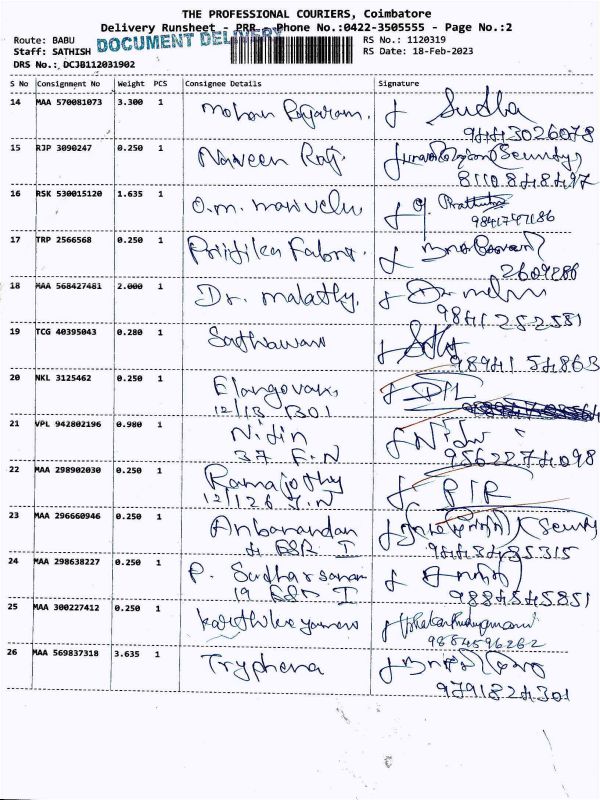 THE PROFESSIONAL COURIERS, Coimbatore
Delivery Runsheet - PRR - Phone No.:0422-3505555 - Page No.:2
Route: BABU DOCUMENT DELIVERY RS No.: 1120319
Staff: SATHISH RS Date: 18-Feb-2023
DRS No.: DCJB112031902
S No Consignment No Weight PCS Consignee Details Signature
14 MAA 570081073 3.300 1 Mohan Rajaram. Sudha
9443026078
15 RJP 3090247 0.250 1 Naveen Raj. (Security)
8110848497
16 RSK 530015120 1.635 1 O.m. marivelu
9841747186
17 TRP 2566568 0.250 1
2609286
18 MAA 568427481 2.000 1 Dr. malathy.
9841252581
19 TCG 40395043 0.280 1
9894154863
20 NKL 3125462 0.250 1 Elangovan,
12/18 BO1
21 VPL 942802196 0.980 1 Nidin
37 F.N 9562274098
22 MAA 298902030 0.250 1 Ramajothy
12/126 J.N
23 MAA 296660946 0.250 1 Anbanandan (Security
4 BSR I 9443485315
24 MAA 298638227 0.250 1 P. Sudharsanam
19 BSR I 9884545851
25 MAA 300227412 0.250 1
9884596262
26 MAA 569837318 3.635 1 Tryphena
9791824301